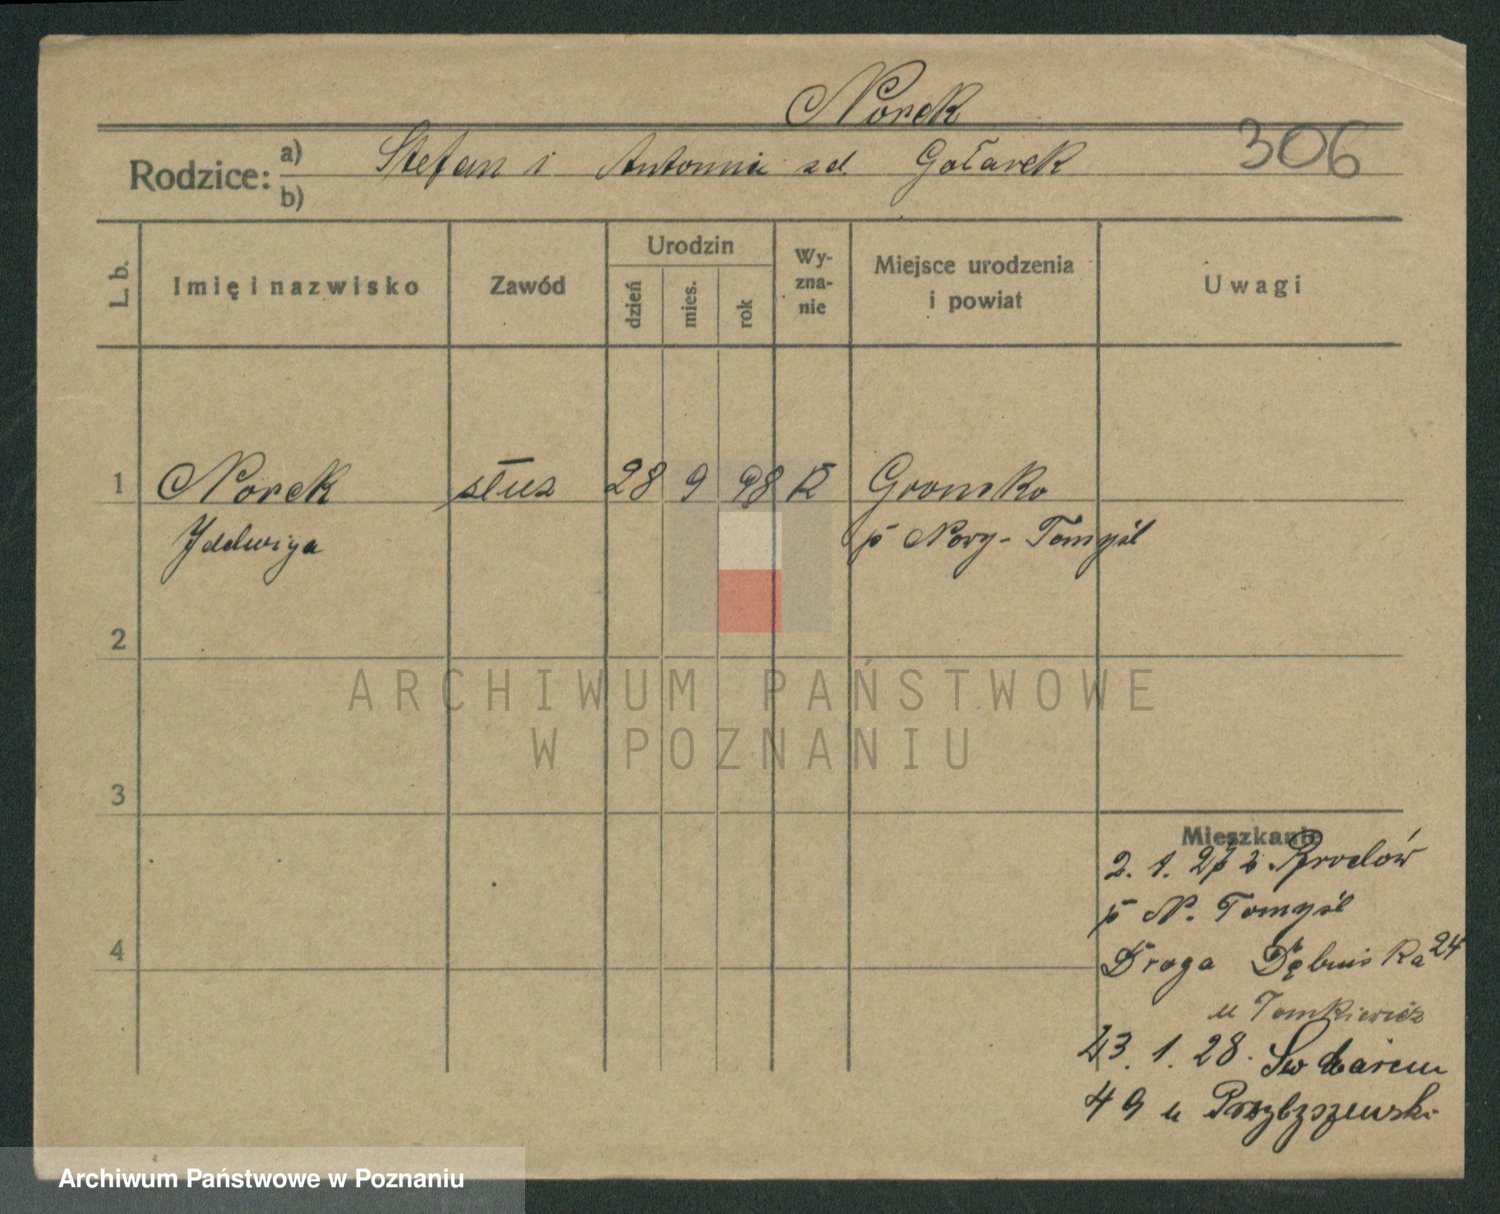 Norek
306
Rodzice: a) Stefan i Antonnia zd Gołarek
b)
L. b.
Imię i nazwisko
Zawód
Urodzin
dzień
mies.
rok
Wy-
zna-
nie
Miejsce urodzenia
i powiat
Uwagi
1 Norek służ 28 9 98 K Gronsko
Jadwiga p Nowy-Tomyśl
2
ARCHIWUM PAŃSTWOWE
W POZNANIU
3
Mieszkanie
2. 1. 27 z Brodów
p N. Tomyśl
4
Droga Dębińska 24
u Tomkiewicz
23. 1. 28. Św Marcin
49 u Przybyszewski
Archiwum Państwowe w Poznaniu